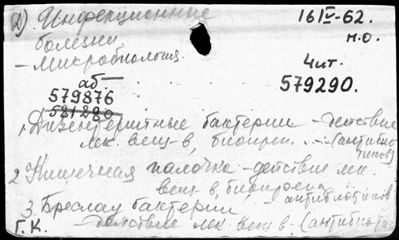 2) Инфекционные 16 IV-62.
болезни м.о.
- Микробиология.
аб- Чит.
579876 579290.
581280
1, Дизентерийные бактерии - действие
лек. вещ-в, биопреп. - (антибио
тиков)
2 Кишечная палочка - действие лек.
вещ-в, биопрепа антибиотиков
3, Бреслау бактерии,
- действие лек. вещ-в - (антибиоти
Г.К.